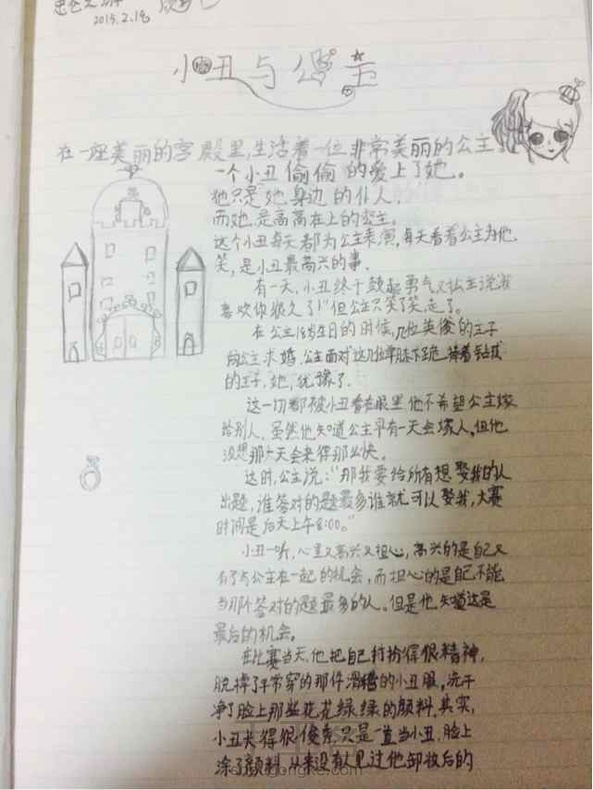 2015.2.18
小丑与公主
在一座美丽的宫殿里,生活着一位非常美丽的公主。
一个小丑偷偷的爱上了她。
他只是她身边的仆人,
而她是高高在上的公主。
这个小丑每天都为公主表演,每天看着公主为他
笑,是小丑最高兴的事.
有一天,小丑终于鼓起勇气对公主说"我
喜欢你很久了!"但公主只笑了笑走了。
在公主18岁生日的时候,几位英俊的王子
向公主求婚,公主面对这几位单膝下跪,捧着钻戒
的王子,她,犹豫了.
这一切都被小丑看在眼里,他不希望公主嫁
给别人,虽然他知道公主早有一天会嫁人,但他
没想那一天会来得那么快。
这时,公主说:"那我要给所有想娶我的人
出题,谁答对的题最多谁就可以娶我,大赛
时间是后天上午8:00。"
小丑一听,心里又高兴又担心,高兴的是自己又
有了与公主在一起的机会,而担心的是自己不能
当那个答对的题最多的人。但是他知道这是
最后的机会。
在比赛当天,他把自己打扮得很精神,
脱掉了平常穿的那件滑稽的小丑服,洗干
净了脸上那些花花绿绿的颜料.其实,
小丑长得很俊,只是一直当小丑,脸上
涂了颜料,从来没有人见过他卸妆后的